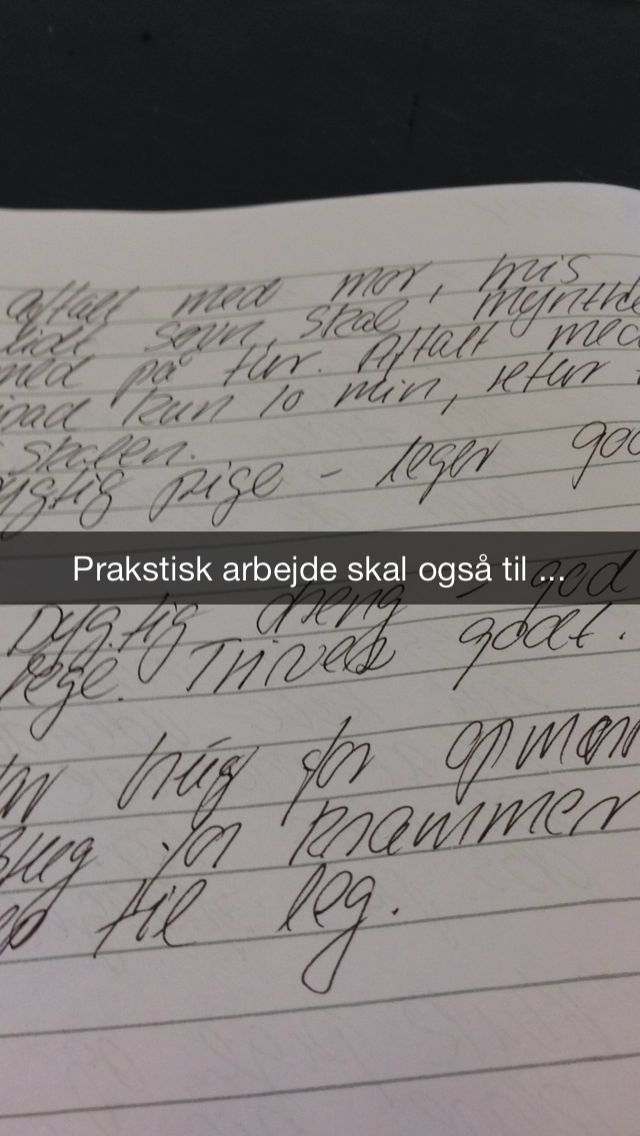 aftalt med mor, hvis
lidt søvn, skal
med på tur. Aftalt med
kun 10 min, retur
skolen.
dygtig pige - leger god
Prakstisk arbejde skal også til ...
Dygtig dreng - god
lege. Trives godt.
har brug for opmær
Brug for krammer
til leg.